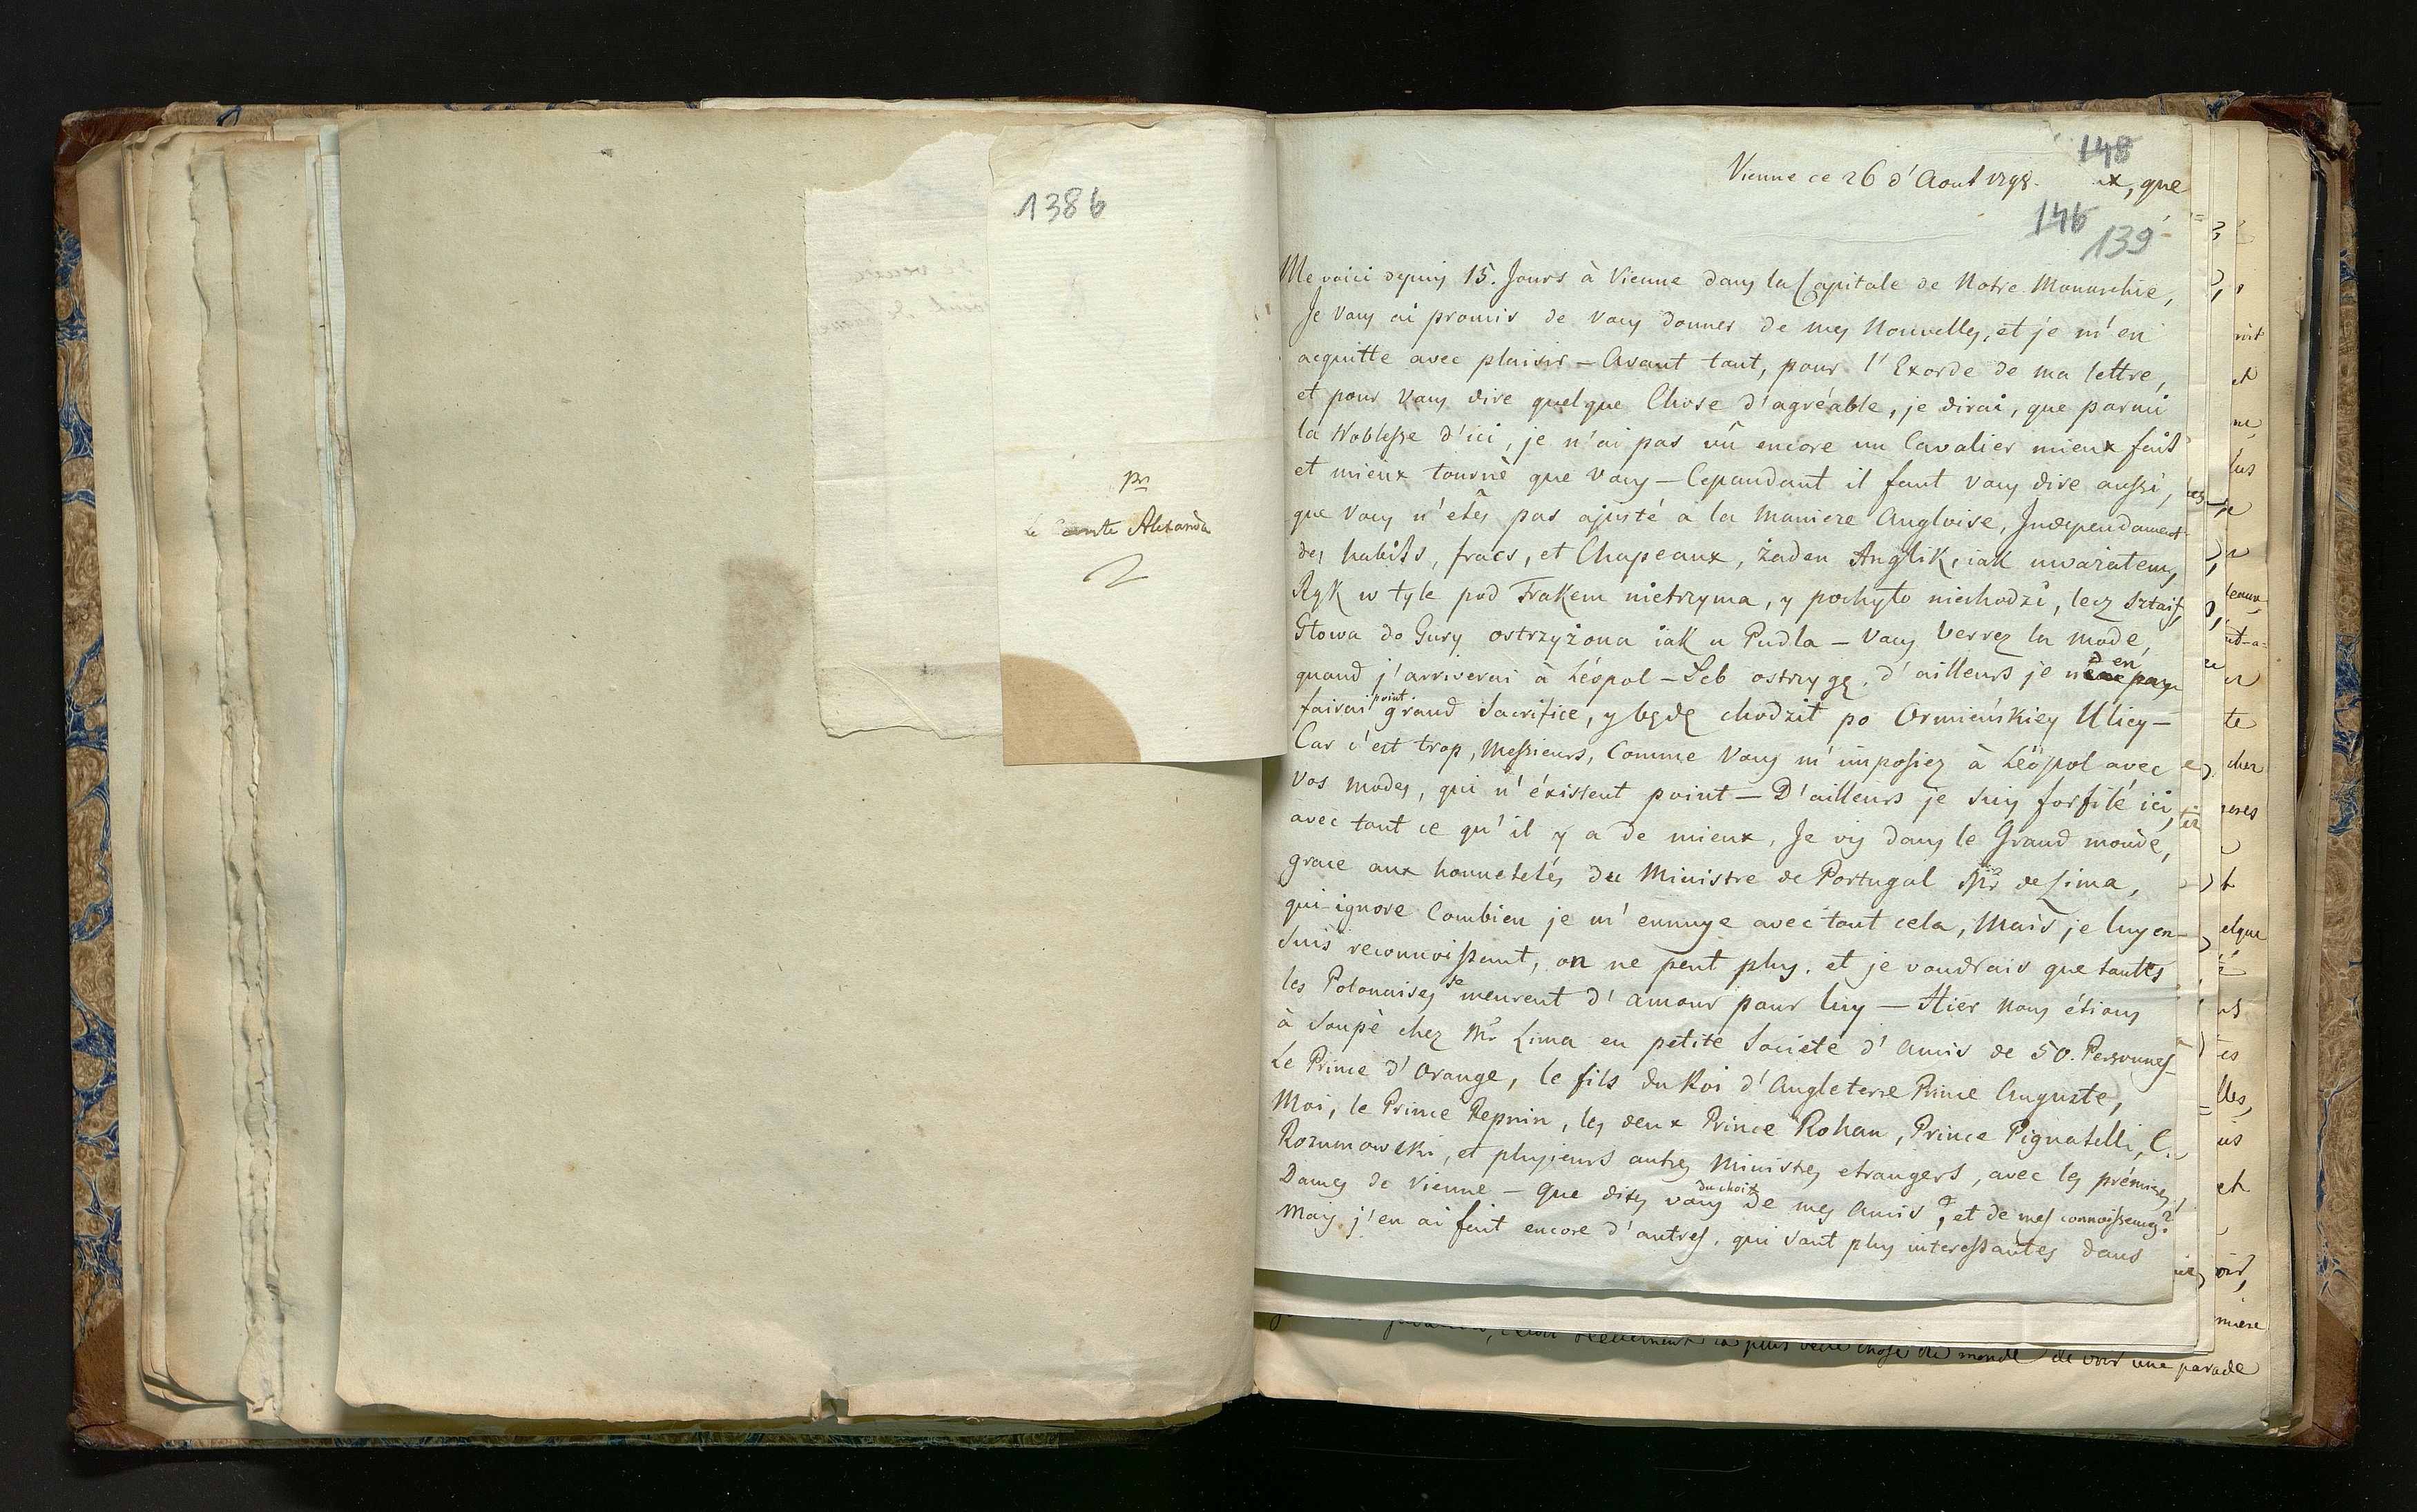 1386
pr
Le Comte Alexandre
148
Vienne ce 26 d'Aout 1798.
ux, que
146
139
Me voici depuis 15. Jours à Vienne dans la Capitale de Notre Monarchie,
Je Vous ai promis de Vous donner de mes Nouvelles, et je m'en
acquitte avec plaisir — Avant tout, pour l'Exorde de ma lettre,
et pour Vous dire quelque Chose d'agréable, je dirai, que parmi
la Noblesse d'ici, je n'ai pas vû encore un Cavalier mieux fait
et mieux tourné que Vous — Cependant il faut Vous dire aussi,
que Vous n'étês pas ajusté a la Maniere Angloise, Independament
des habits, fracs, et Chapeaux, żaden Anglik, iak uważałem,
Rąk w tyle pod Frakem nietrzyma, y pochyło niechodzi, lecz sztaif,
Głowa do Gury ostrzyżona iak u Pudla — Vous Verrez la mode,
quand j'arriverai à Léopol — Łeb ostrzygę, d'ailleurs je n'en
fairai point grand Sacrifice, y będę chodził po Ormiańskiey Ulicy —
Car c'est trop, Messieurs, Comme Vous m'imposiez à Léopol avec
Vos Modes, qui n'éxistent point — D'ailleurs je suis forfilé ici,
avec tout ce qu'il y a de mieux, Je vis dans le Grand monde,
grace aux honnetetés du Ministre de Portugal Mr de Lima,
qui ignore Combien je m'ennuye avec tout cela, Mais je luy en
suis reconnoissant, on ne peut plus, et je voudrais que toutes
les Polonaises se meurent d'amour pour luy — Hier Nous étions
à Soupé chez Mr Lima en petite Societé d'Amis de 50. Personnes —
Le Prince d'Orange, le fils du Roi d'Angleterre Prince Auguste,
Moi, le Prince Repnin, les deux Prince Rohan, Prince Pignatelli, C.
Rozumowski, et plusieurs autres Ministres etrangers, avec les prémieres
Dames de Vienne — Que dites vous du choix de mes Amis, et de mes connoissences?
Mais j'en ai fait encore d'autres, qui sont plus interessantes dans
la plus belle chose du monde de voir une parade